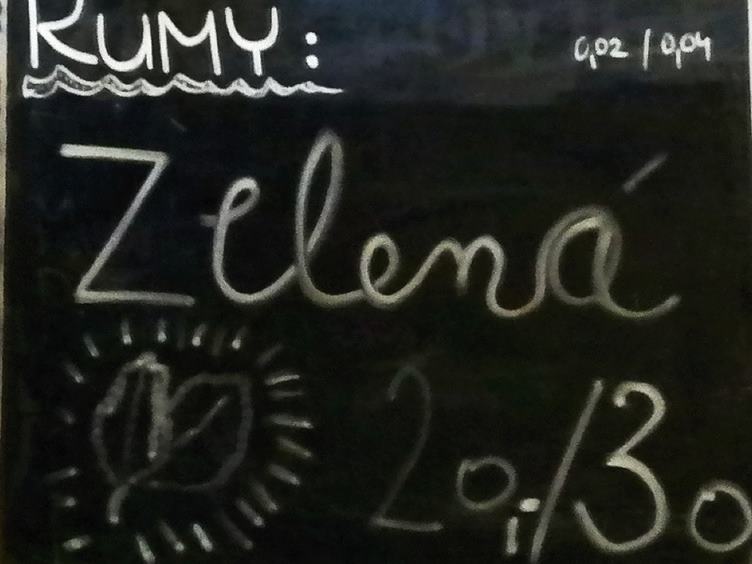 RUMY:
0,02 / 0,04
Zelená
20,/30